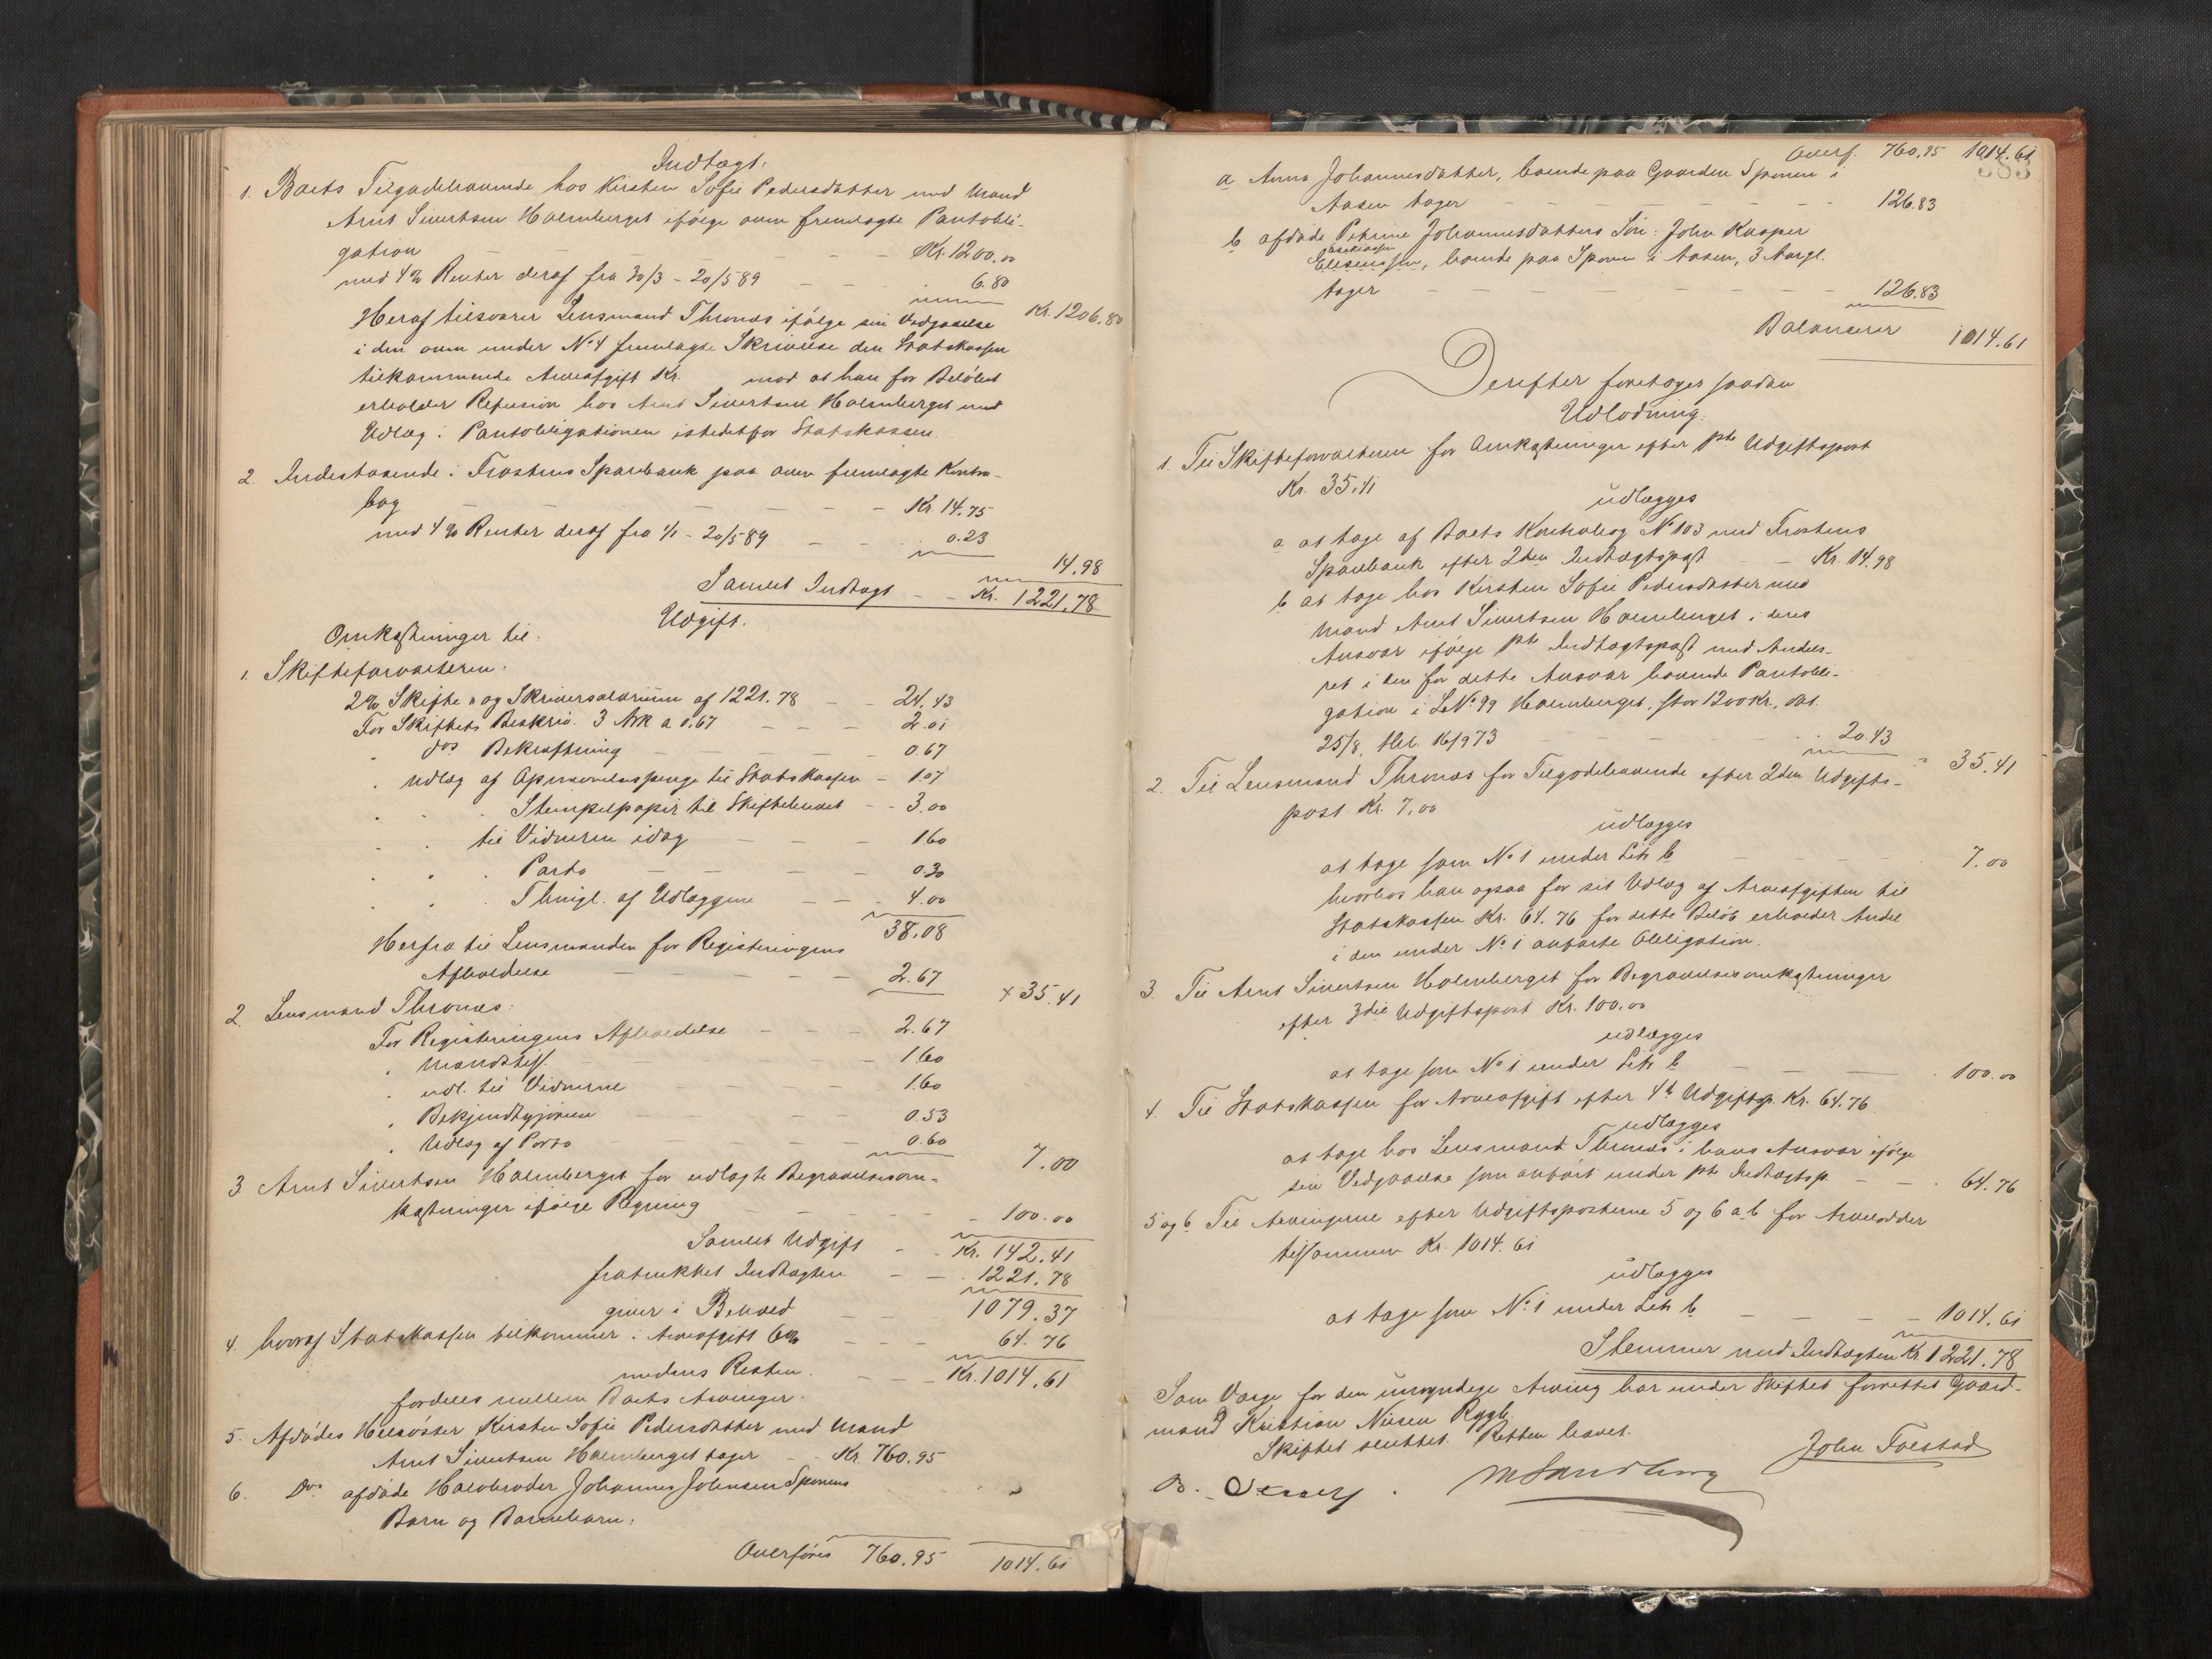 Indtægt.
1. Boets Tilgodehavende hos Kirsten Sofie Pedersdatter med Mand
Arnt Sivertsen Holmberget ifølge ovm fremlagte Pantobli-
gation Kr. 1200.00
med 4% Renter deraf fra 30/3 - 20/5 89 6.80
Kr. 1206.80
Heraf tilsvarer Lensmand Thronæs ifølge sin Vedgaaelse
i den ovm under No 4 fremlagte Skrivelse den Statskassen
tilkommende Arveafgift Kr. mod at han for Beløbet
erholder Refusion hos Arnt Sivertsen Holmberget med
Udlæg i Pantobligationen istedetfor Statskassen.
2. Indestaaende i Frostens Sparebank paa ovm fremlagte Kontra-
bog Kr. 14.75
med 4% Renter deraf fra 1/1 - 20/5 89 0.23
14.98
Samlet Indtægt Kr. 1221.78
Udgift.
Omkostninger til:
1. Skifteforvalteren:
2% Skifte- og Skriversalarium af 1221.78 24.43
For Skiftets Beskriv. 3 Ark a 0.67 2.01
" dos Bekræftning 0.67
" Udlæg af Opnævnelsespenge til Statskassen 1.07
" " Stempelpapir til Skiftebrevet 3.00
" " til Vidnerne idag 1.60
" " " Porto 0.30
" " " Thingl. af Udlæggene 4.00
38.08
Herfra til Lensmanden for Registreringens
Afholdelse 2.67
+ 35.41
2. Lensmand Thronæs:
For Registreringens Afholdelse 2.67
" 1.60
" udl. til Vidnerne 1.60
" Bekjendtgjørelse 0.53
" Udlæg af Porto 0.60
7.00
3 Arnt Sivertsen Holmberget for udlagte Begravelsesom-
kostninger ifølge Regning 100.00
Samlet Udgift Kr. 142.41
fratrukket Indtægten 1221.78
giver i Behold 1079.37
4. hvoraf Statskassen tilkommer i Arveafgift 6% 64.76
medens Resten Kr. 1014.61
fordeles mellem Boets Arvinger.
5. Afdødes Helsøster Kirsten Sofie Pedersdatter med Mand
Arnt Sivertsen Holmberget tager Kr. 760.95
6. Dos afdøde Halvbroder Johannes Johnsen Sponens
Barn og Barnebarn:
Overføres 760.95 1014.61
383
Overf. 760.95 1014.61
a Anna Johannesdatter, boende paa Gaarden Sponen i
Aasen tager 126.83
b afdøde Petrine Johannesdatters Søn: John Kasper
Eliseussen, boende paa Sponen i Aasen, 3 Aargl.
tager 126.83
Balancerer 1014.61
Derefter foretoges saadan
Udlodning.
1. Til Skifteforvalteren for Omkostninger efter 1ste Udgiftspost
Kr. 35.41
udlægges
a at tage af Boets Kontrabog No 103 med Frostens
Sparebank efter 2den Indtægtspost Kr. 14.98
b at tage hos Kirsten Sofie Pedersdatter med
Mand Arnt Sivertsen Holmberget i deres
Ansvar ifølge 1ste Indtægtspost med Andels-
ret i den for dette Ansvar havende Pantobli-
gation i LNo 99 Holmberget, stor 1200 Kr., dat.
25/8, thl. 16/9 73 20.43
35.41
2. Til Lensmand Thronæs for Tilgodehavende efter 2den Udgifts-
post Kr. 7.00
udlægges
at tage som No 1 under Litr b 7.00
hvorhos han ogsaa for sit Udlæg af Arveafgiften til
Statskassen Kr. 64.76 for dette Beløb erholder Andel
i den under No 1 anførte Obligation.
3. Til Arnt Sivertsen Holmberget for Begravelsesomkostninger
efter 3die Udgiftspost Kr. 100.00
udlægges
at tage som No 1 under Litr b 100.00
4. Til Statskassen for Arveafgift efter 4de Udgiftsp. Kr. 64.76
udlægges
at tage hos Lensmand Thronæs i hans Ansvar ifølge
sin Vedgaaelse som anført under 1ste Indtægtsp. 64.76
5 og 6 Til Arvingerne efter Udgiftsposterne 5 og 6 a b for Arvelodder
tilsammen Kr. 1014.61
udlægges
at tage som No 1 under Litr b 1014.61
Stemmer med Indtægten Kr 1221.78
Som Værge for den umyndige Arving har under Skiftet forrettet Gaard-
mand Kristian Nilsen Rygh.
Skiftet sluttet. Retten hævet.
John Foestad
M Sandberg